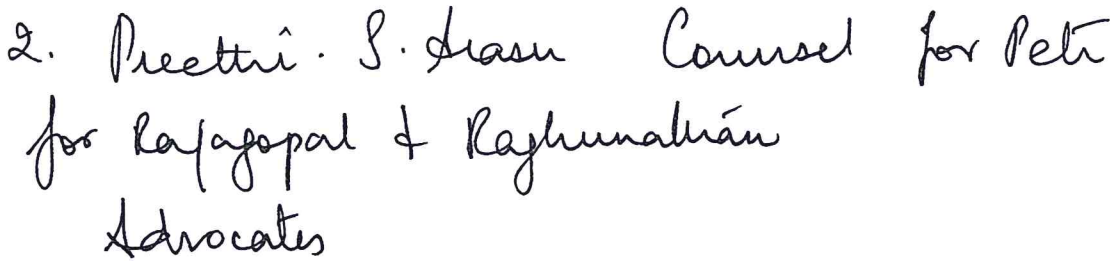 2. Preethi. S. Arasu Counsel for Petr
for Rajagopal & Raghunathan
Advocates